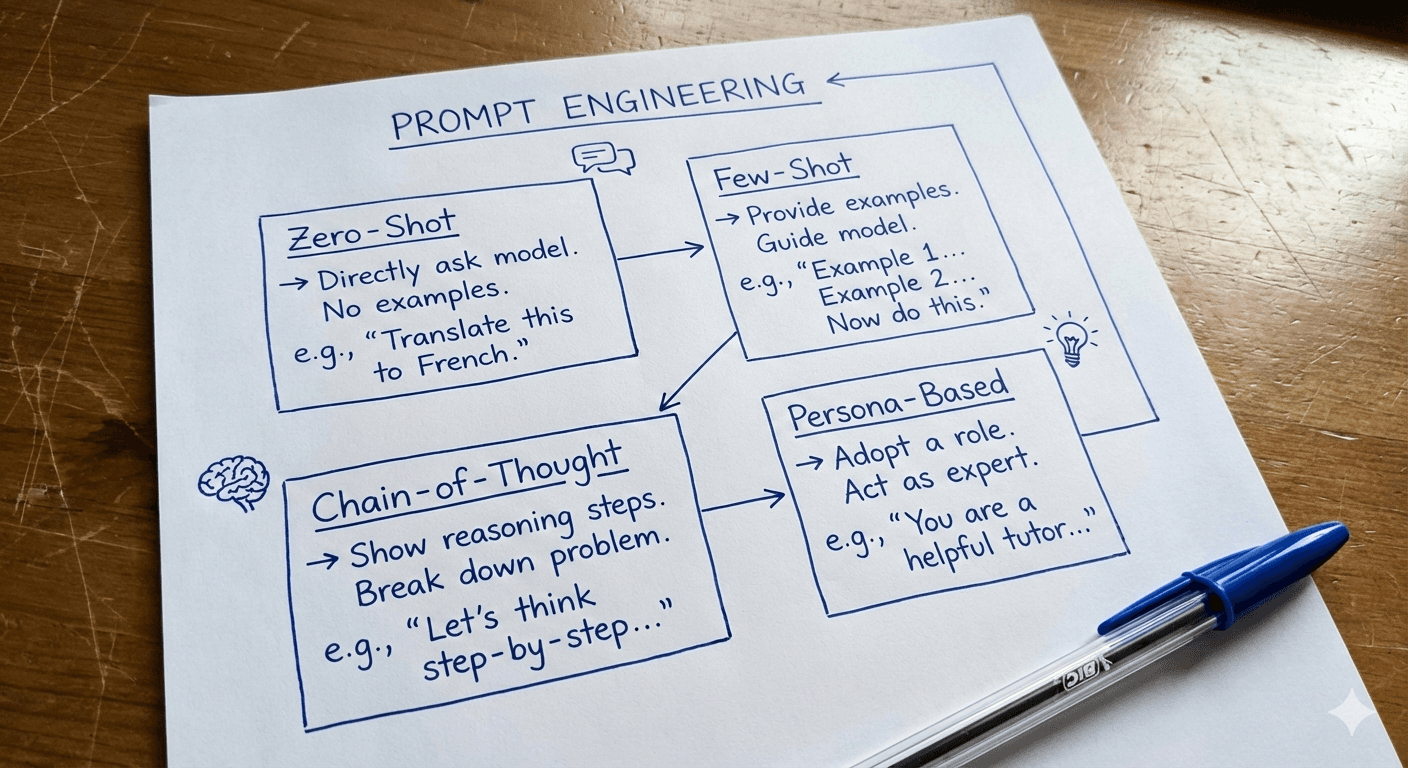 PROMPT ENGINEERING
Zero-Shot
→ Directly ask model.
No examples.
e.g., “Translate this
to French.”
Few-Shot
→ Provide examples.
Guide model.
e.g., “Example 1...
Example 2...
Now do this.”
Chain-of-Thought
→ Show reasoning steps.
Break down problem.
e.g., “Let's think
step-by-step...”
Persona-Based
→ Adopt a role.
Act as expert.
e.g., “You are a
helpful tutor...”
BIC